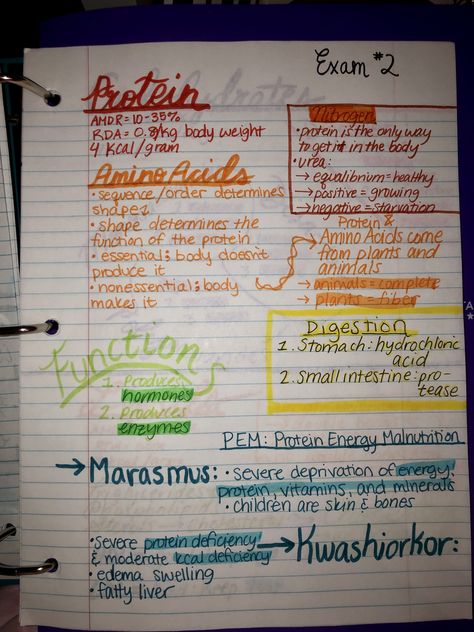 Exam #2
Protein
AMDR = 10-35%
RDA = 0.8g/kg body weight
4 Kcal/gram
Nitrogen
• protein is the only way
to get it in the body
• urea:
→ equalibrium = healthy
→ positive = growing
→ negative = starvation
Amino Acids
• sequence/order determines
shape
• shape determines the
function of the protein
• essential: body doesn't
produce it
• nonessential: body
makes it
Protein &
Amino Acids come
from plants and
animals
→ animals = complete
→ plants = fiber
Function
1. Produces
hormones
2. Produces
enzymes
Digestion
1. Stomach: hydrochloric
acid
2. Small intestine: pro-
tease
PEM: Protein Energy Malnutrition
→ Marasmus: • severe deprivation of energy,
protein, vitamins, and minerals
• children are skin & bones
• severe protein deficiency
& moderate kcal deficiency → Kwashiorkor:
• edema swelling
• fatty liver